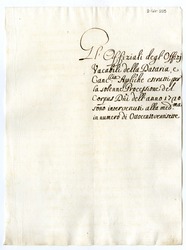 Gl'Offiziali degl'Offizi
Vacabili della Dataria, e
Canc.ria Aplica estratti per
la solenne Processione del
Corpus Dni dell'anno 1720
sono intervenuti alla med.ma
in numero di